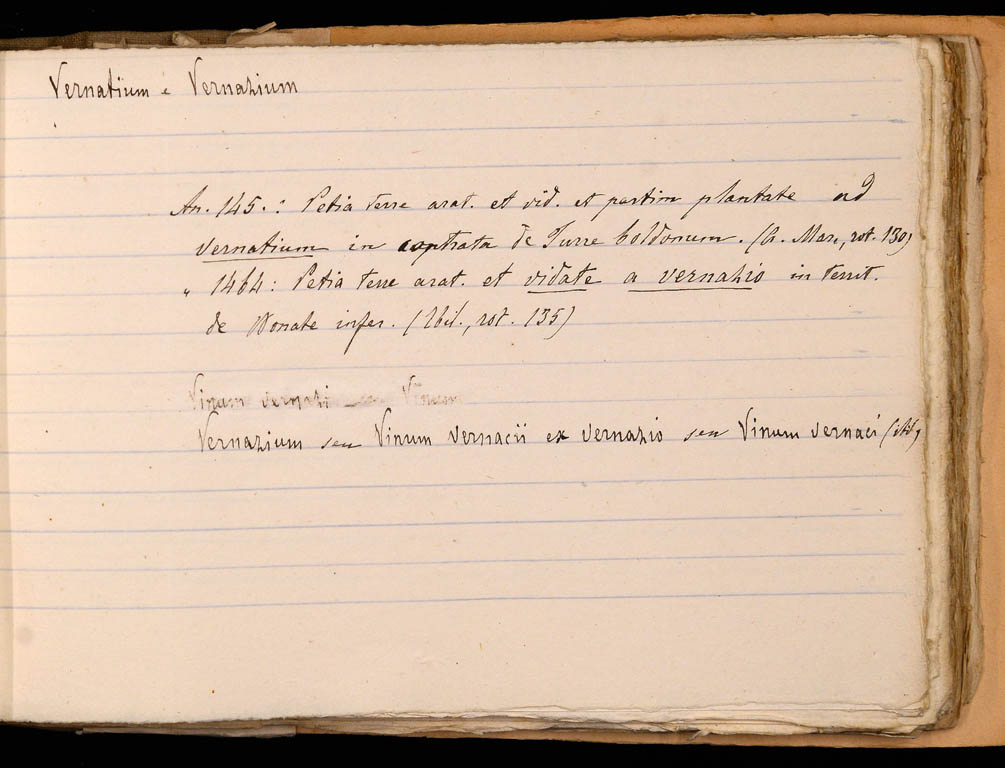 Vernatium e Vernazium
An. 145. : Petia terre arat. et vid. et partim plantate ad
vernatium in contrata de Turre boldonum. (A. Mar., rot. 130)
„ 1464: Petia terre arat. et vidate a vernazio in territ.
de Bonate infer. (Ibid., rot. 135)
Vinum vernazi seu Vinum
Vernazium seu Vinum vernacii ex vernazio seu Vinum vernaci (ibi,